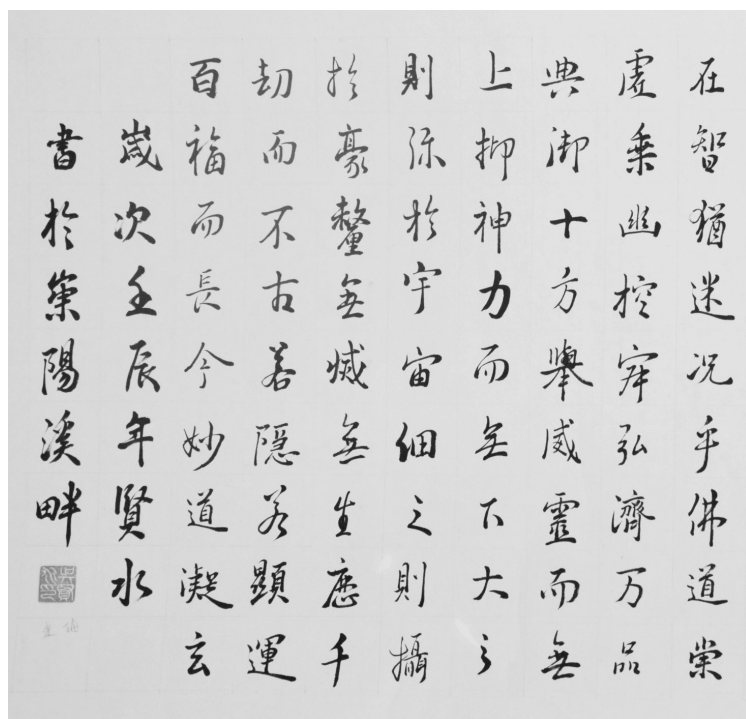 在智猶迷況乎佛道崇
虛乘幽控寂弘濟万品
典御十方舉威靈而無
上抑神力而無下大之
則弥於宇宙細之則攝
於豪釐無滅無生歷千
劫而不古若隱若顯運
百福而長今妙道凝玄
歲次壬辰年賢水
書於崇陽溪畔